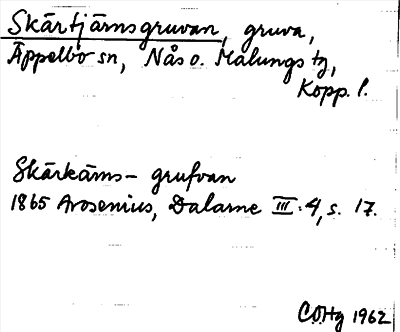 Skärtjärnsgruvan, gruva,
Äppelbo sn, Nås o. Malungs tg,
Kopp. l.
Skärkärns- grufvan
1865 Arosenius, Dalarne III:4, s. 17.
COHg 1962